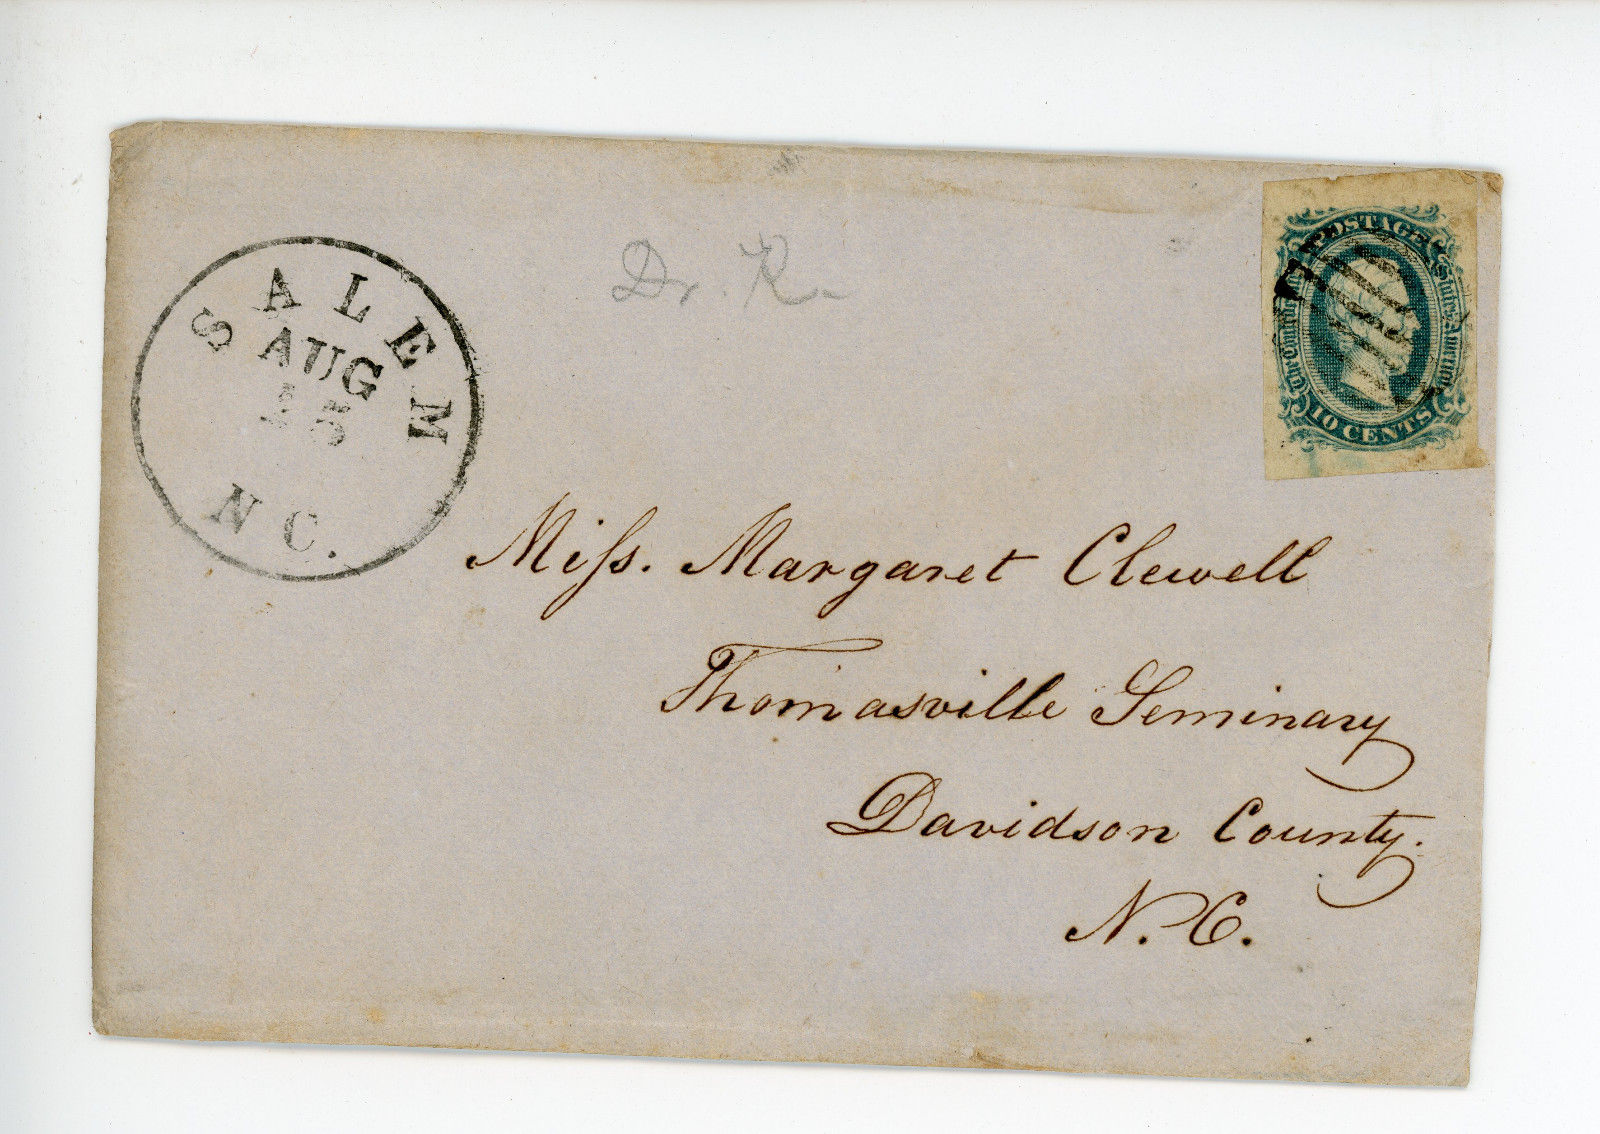 SALEM
AUG
15
N C.
Dr. K.
POSTAGE
The Confederate States of America
10 CENTS
Miſs. Margaret Clewell
Thomasville Seminary
Davidson County.
N.C.